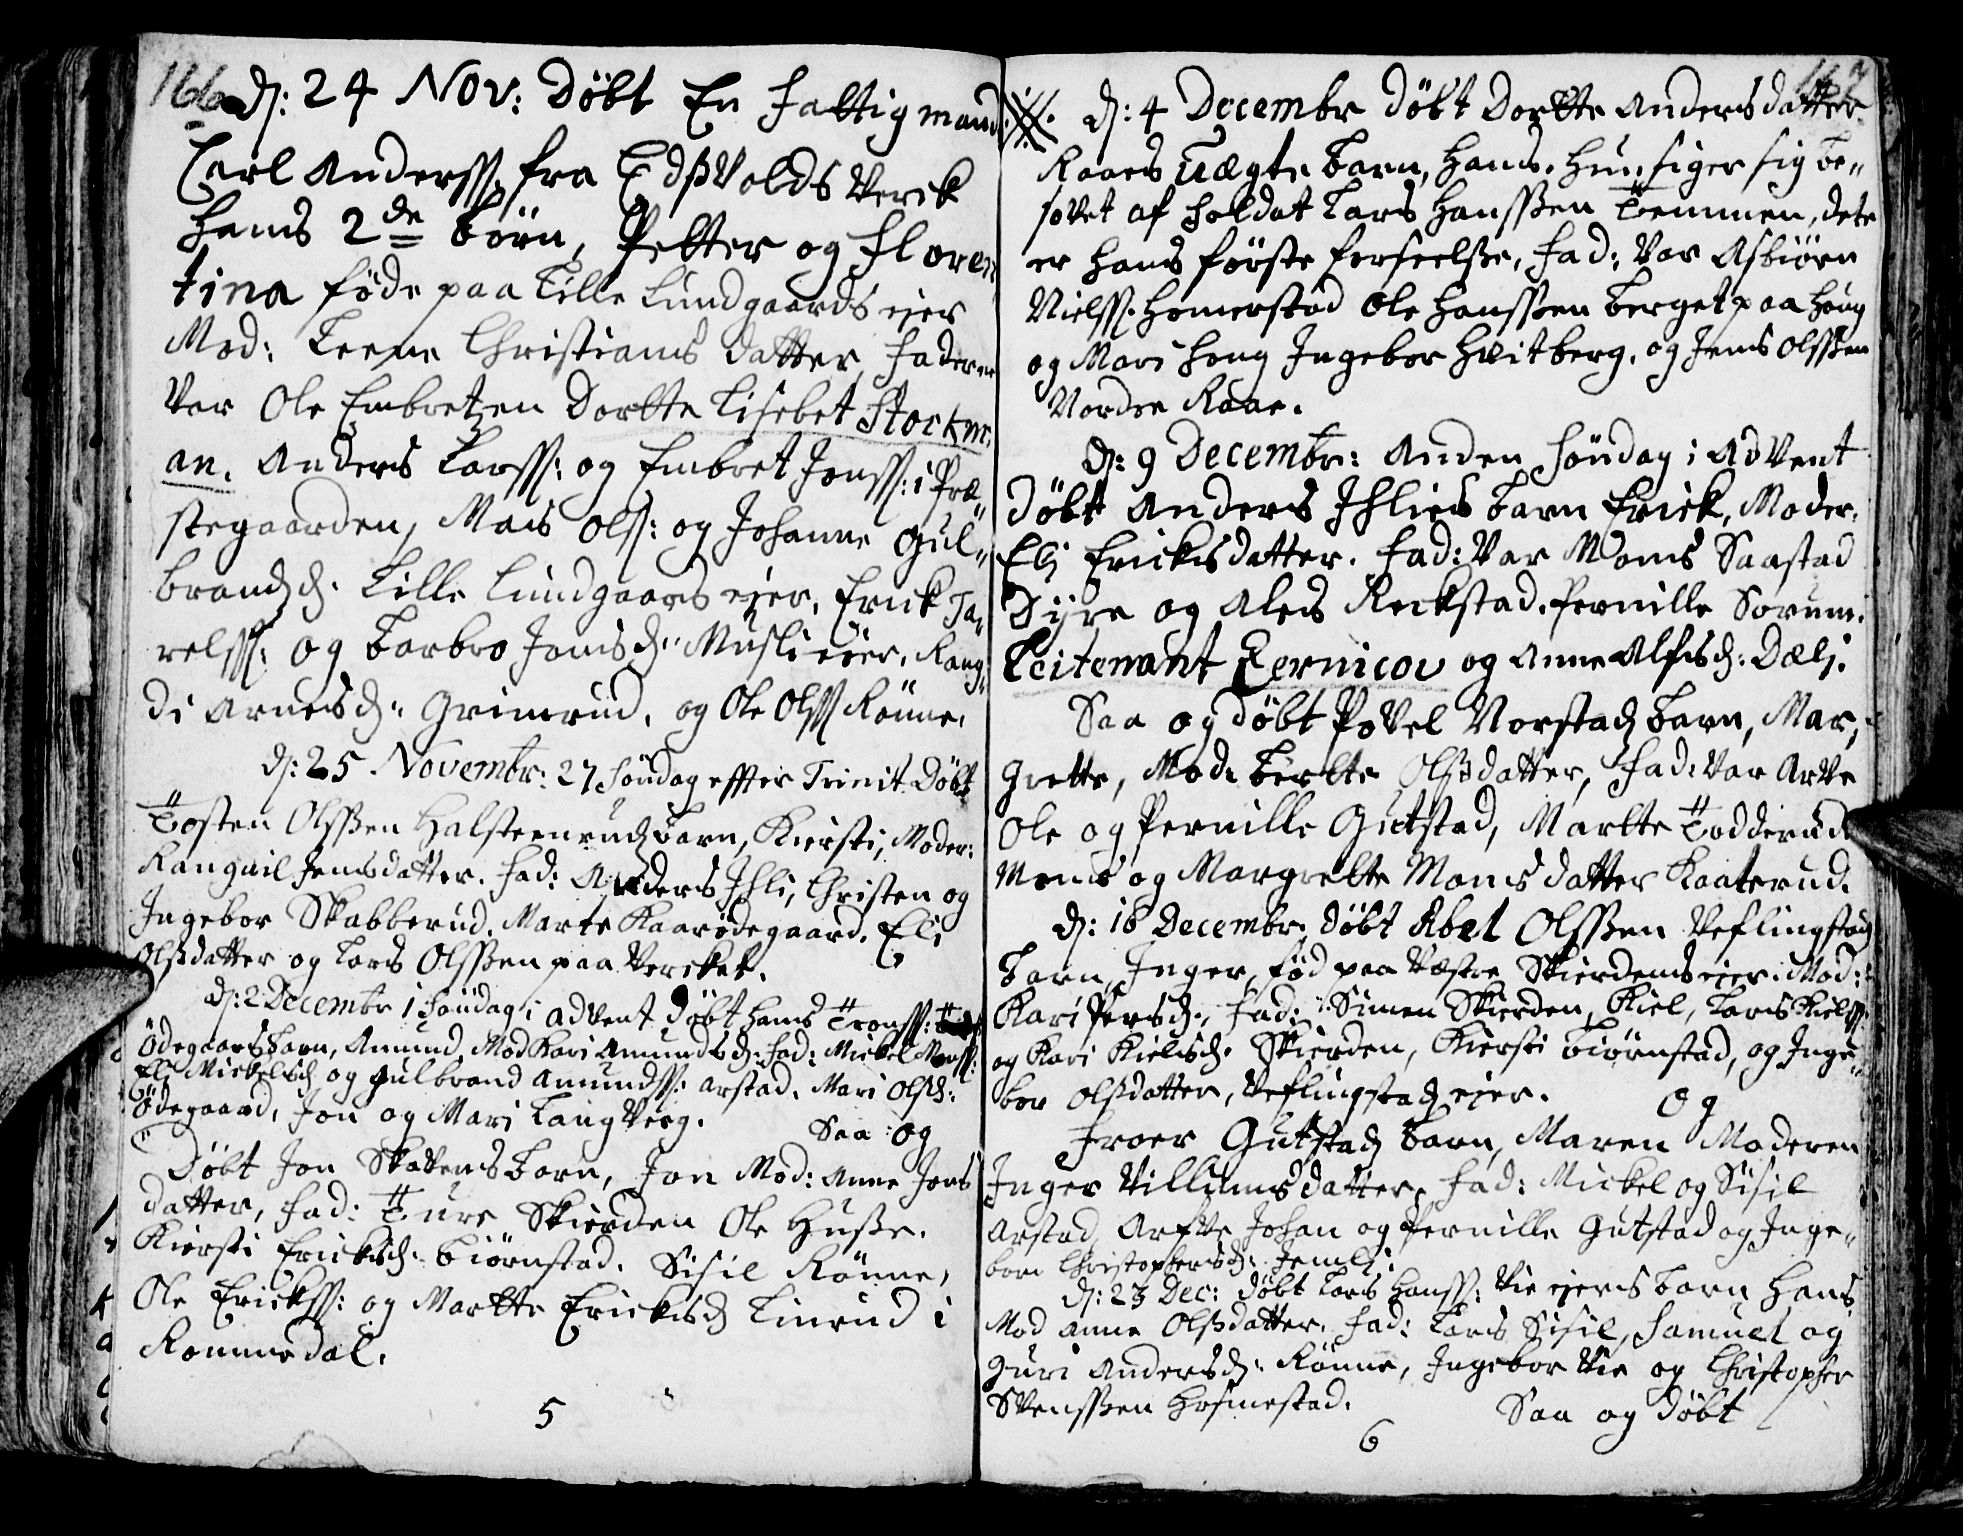 166 dj: 24 Nov: Döbt En fattig mand
Carl Anderss. fra Edsvolds Verck
hans 2de börn, Petter og Floren
tina föde paa Lille Lundgaards ejer
Mod: Leene Christians datter, fadderne
var Ole Embretzen Dortte Lisebet Stockm,
an. Anders Larss: og Embret Jonss: i Præ„
stegaarden, Mars Olss: og Johanne Gul„
brandsd. Lille Lundgaards ejer, Erick Ja„
relss: og Barbro Jonsd. Musli ejer, Rang„
di Arnesd: Grimrud, og Ole Olss Rönne.
dj: 25 Novembr: 27 Söndag effter Trinit Döbt
Tosten Olssen Halsteenrudz barn, Kiersti, Moder:
Rangnil Jensdatter. Fad: Anders Ihli, Christen og
Ingebor Skabberud. Marte Kaarödegaard. Eli
Olsdatter og Lars Olssen paa Vercket.
dj: 2 Decembr 1 Söndag i Advent Döbt Hans Tronss:
Ödegaards barn, Amund, Mod Kari Amundsd: Fad: Mickel Monss:
Eli Mickelsd og Gulbrand Amundss: Arstad. Mari Olsd:
Ödegaard, Jon og Mari Langverg. Saa og
Döbt Jon Skattens barn, Jon Mod: Anne Jons
datter, Fad: Ture Skierden Ole Husse.
Kiersti Ericksd. Biörnstad. Sisil Rönne,
Ole Erickss: og Martte Ericksd Linrud i
Rommedal.
5
167
dj: 4 Decembr Döbt Dortte Andersdatter
Raaes Uægte barn, Hans. hun siger sig be„
sovet af Soldat Lars Hanssen Temmen, dete
er hans förste forseelse, Fad: var Asbiörn
Nielss. Homerstad Ole Hanssen Berget paa Houg
og Mari Houg Ingebor Hvitberg, og Jens Olssen
Nordre Raae.
dj: 9 Decembr: Anden Söndag i Advent
Döbt Anders Ihlies barn Erick, Moder,
Eli Ericksdatter. Fad: var Mons Saastad
Syre og Ales Reckstad. Pernille Sorum.
Leitenant Zernicov og Anne Alfsd: Dæli.
Saa og Döbt Povel Norstadz barn, Mar„
grette, Mod: Bertte Olsdatter, Fad: var Arve
Ole og Pernille Gutstad, Martte Todderud
Mons og Margrette Monsdatter Kaaterud.
dj: 16 Decembr, Döbt Abel Olssen Veflingstad
barn, Inger, född paa Væstre Skierdens ejer. Mod:
Kari Persd:, Fad: Simen Skierden, Kiel, Lars Kielss:
og Kari Kielsd. Skierden, Kiersti Biörnstad, og Inge„
bor Olsdatter, Veflingstad ejer. Og
Froer Gutstadz barn, Maren Moderen
Inger Villumsdatter, Fad: Mickel og Sisil
Arstad, Arfve Johan og Pernille Gutstad og Inge„
bor Christophersd: Jemli.
dj: 23 Dec: Döbt Lars Hanss: Vie ejers barn Hans
Mod Anne Olsdatter, Fad: Lars Sisil, Samuel og
Guri Andersd: Rönne, Ingebor Vie og Christopher
Svenssen Hosmestad. Saa og Döbt
6